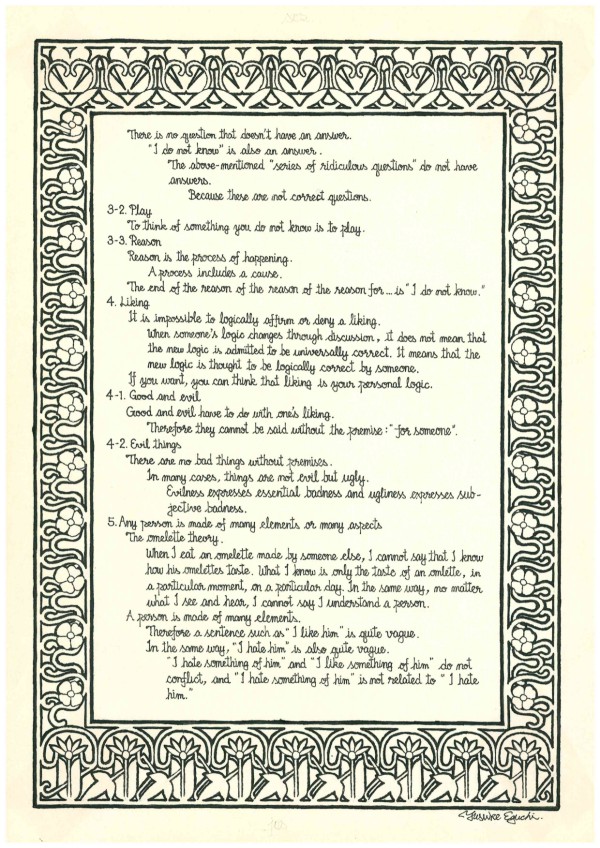 There is no question that doesn't have an answer.
"I do not know" is also an answer.
The above-mentioned "series of ridiculous questions" do not have
answers.
Because these are not correct questions.
3-2. Play
To think of something you do not know is to play.
3-3. Reason
Reason is the process of happening.
A process includes a cause.
The end of the reason of the reason of the reason for... is "I do not know."
4. Liking
It is impossible to logically affirm or deny a liking.
When someone's logic changes through discussion, it does not mean that
the new logic is admitted to be universally correct. It means that the
new logic is thought to be logically correct by someone.
If you want, you can think that liking is your personal logic.
4-1. Good and evil
Good and evil have to do with one's liking.
Therefore they cannot be said without the premise: "for someone".
4-2. Evil things
There are no bad things without premises.
In many cases, things are not evil but ugly.
Evilness expresses essential badness and ugliness expresses sub-
jective badness.
5. Any person is made of many elements or many aspects
The omelette theory.
When I eat an omelette made by someone else, I cannot say that I know
how his omelettes taste. What I know is only the taste of an omlette, in
a particular moment, on a particular day. In the same way, no matter
what I see and hear, I cannot say I understand a person.
A person is made of many elements.
Therefore a sentence such as "I like him" is quite vague.
In the same way, "I hate him" is also quite vague.
"I hate something of him" and "I like something of him" do not
conflict, and "I hate something of him" is not related to "I hate
him."
Yusuke Eguchi.